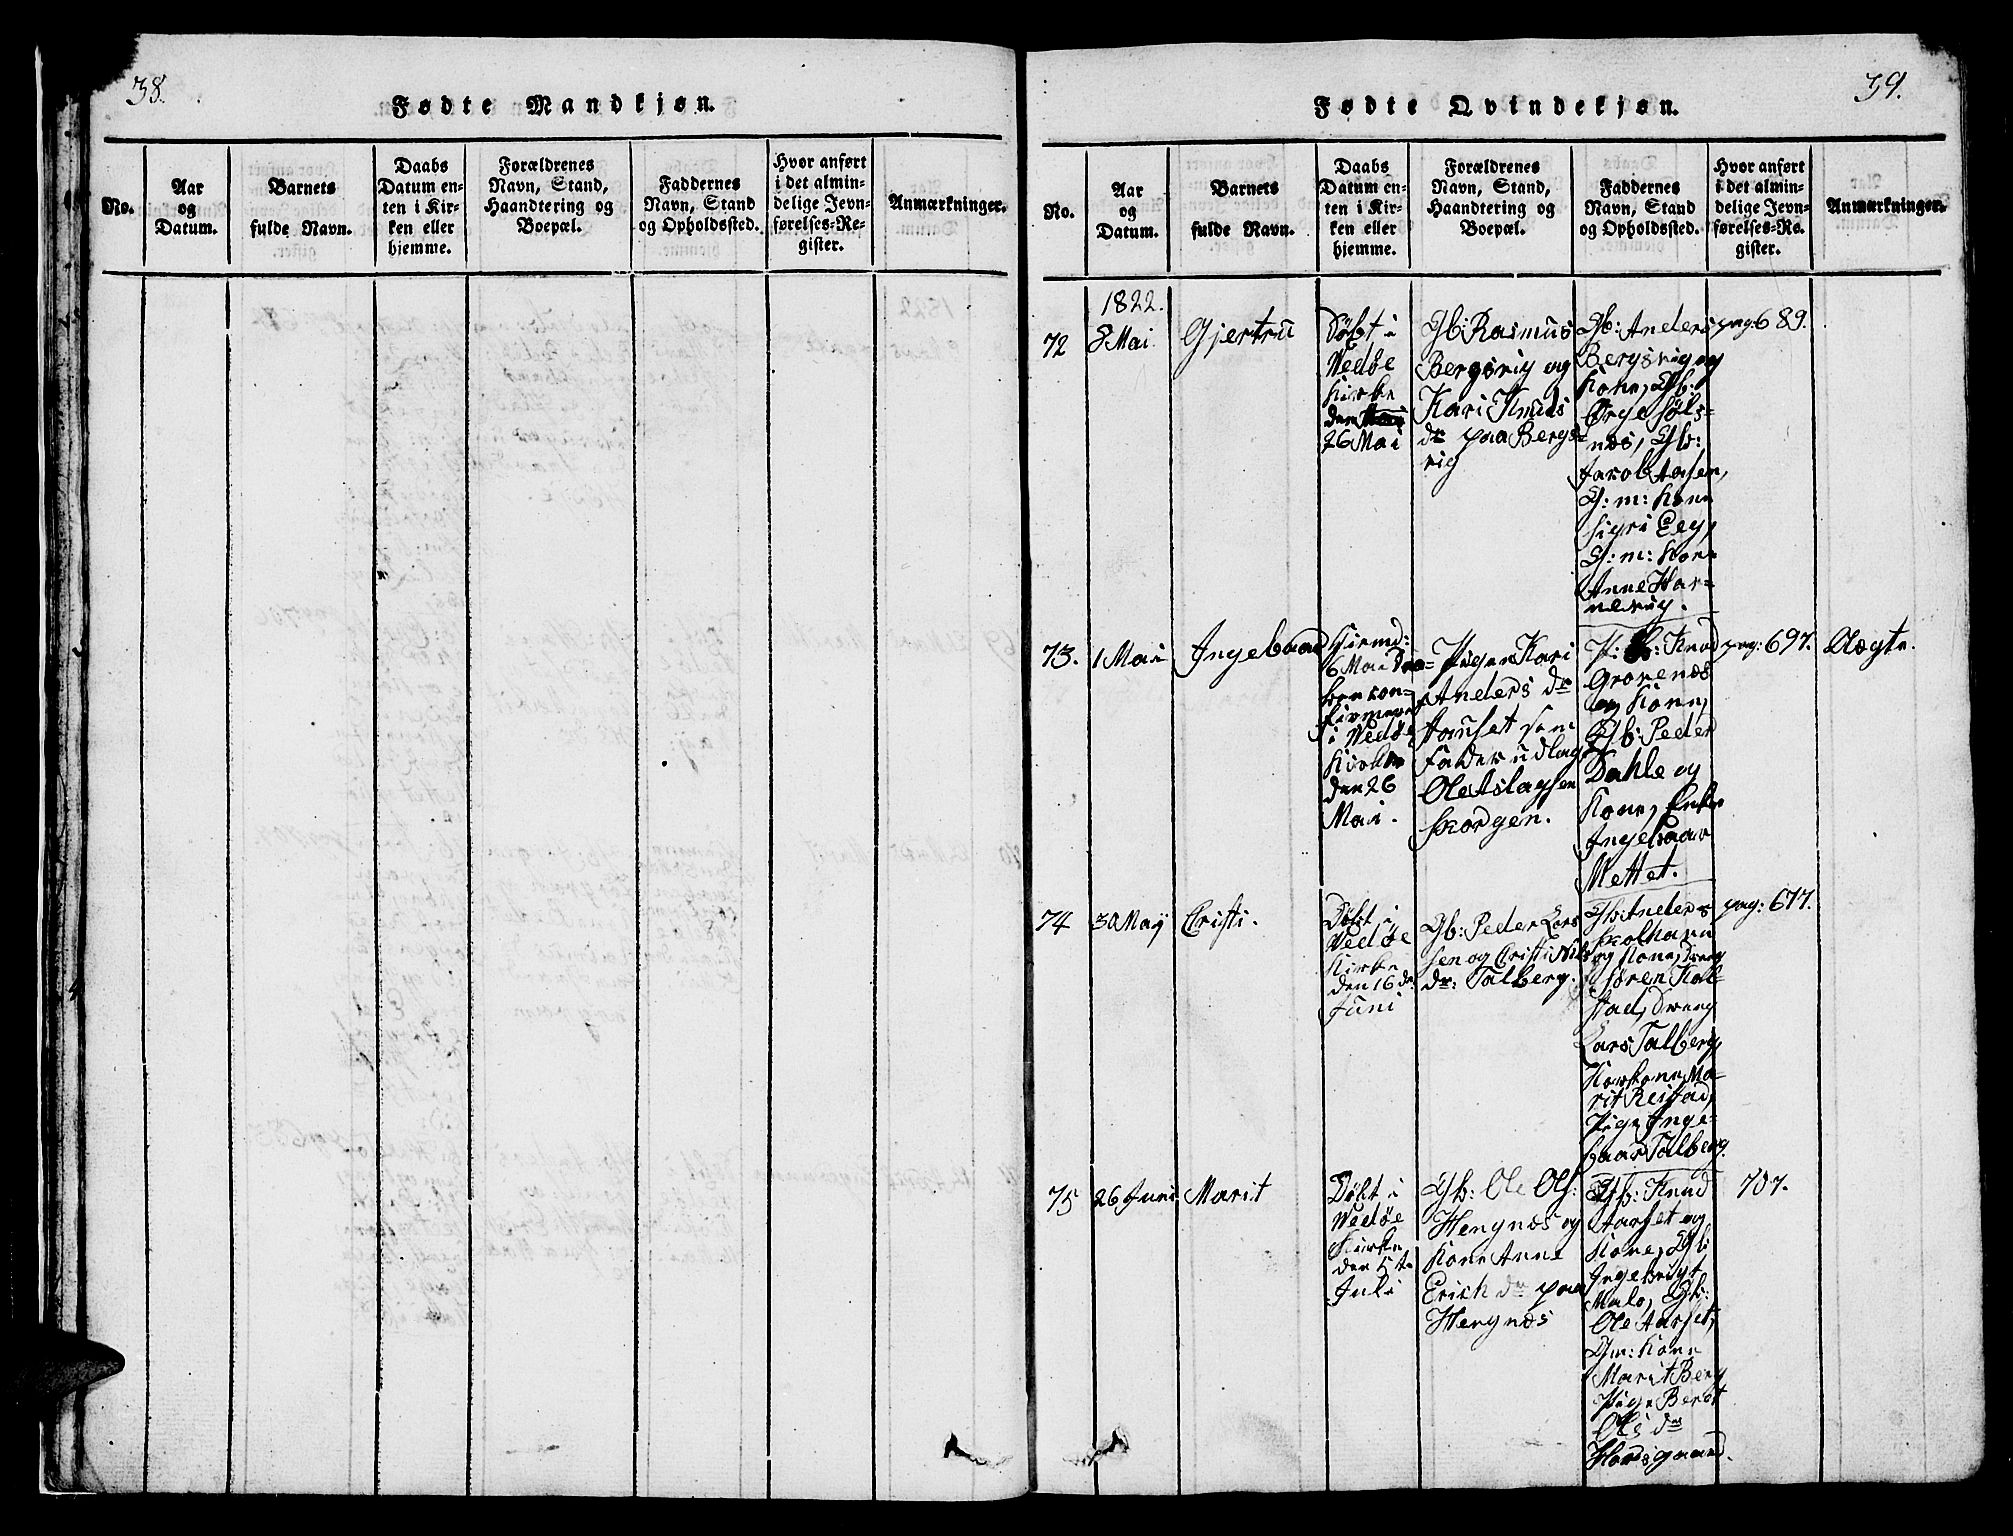 38.
Fødte Mandkjøn.
No.
Aar
og
Datum.
Barnets
fulde Navn.
Daabs
Datum en-
ten i Kir-
ken eller
hjemme.
Forældrenes
Navn, Stand,
Haandtering og
Boepæl.
Faddernes
Navn, Stand
og Opholdssted.
Hvor anført
i det almin-
delige Jevn-
førelses-Re-
gister.
Anmærkninger.
39.
Fødte Qvindekjøn.
No.
Aar
og
Datum.
Barnets
fulde Navn.
Daabs
Datum en-
ten i Kir-
ken eller
hjemme.
Forældrenes
Navn, Stand,
Haandtering og
Boepæl.
Faddernes
Navn, Stand
og Opholdssted.
Hvor anført
i det almin-
delige Jevn-
førelses-Re-
gister.
Anmærkninger.
1822.
72
8 Mai
Gjertru
Døbt i
Wedøe
Kirke
den
26 Mai
Gb: Rasmus
Bergsvig og
Kari Knuds
dr paa Bergs-
vig
Gb: Anders
Bergsvig og
Kone, Gb:
Ørge Søls-
næs, Gb:
Jacob Aasen,
G: m: Kone
Sigri Eeg,
G: m: Kone
Anne Har-
nesvig.
pag: 689.
73.
1 Mai
Ingebaar
Hiemd:
6 Mai Daa-
ben con-
firmeret
i Wedøe
Kirke
den 26
Mai.
Pigen Kari
Anders dr
som
Fader udlag
Ole Aslagsen
Skorgen.
Knud
Grovenæs
og Kone,
Gb: Peder
Dahle og
Kone, Enke
Ingebaar
Mettet.
pag: 697.
Uægte.
74
30 Maij
Christi.
Døbt i
Wedøe
Kirke
den 16 de
Juni
Gb: Peder Lars
sen og Christi Nils
dr: Talberg.
Gb: Anders
Skolhavn
og Kone, Dreng
Søren Kal-
stad, Dreng
Lars Talberg
Kone Ma-
rit Reistad,
Pige Inge-
baar Talberg.
pag: 677.
75
26 Juni
Marit
Døbt i
Wedøe
Kirke
den 5 te
Juli
Gb: Ole Ols:
Hengnæs og
Kone Anne
Erich dr paa
Hengnæs
Gb: Knud
Aarset og
Kone, Gb:
Ingebrigt
Malo, Gb:
Ole Aarset,
Gm: Kone
Marit Berg
Pige Beret
Ols dr
Hovdsgaard.
707.